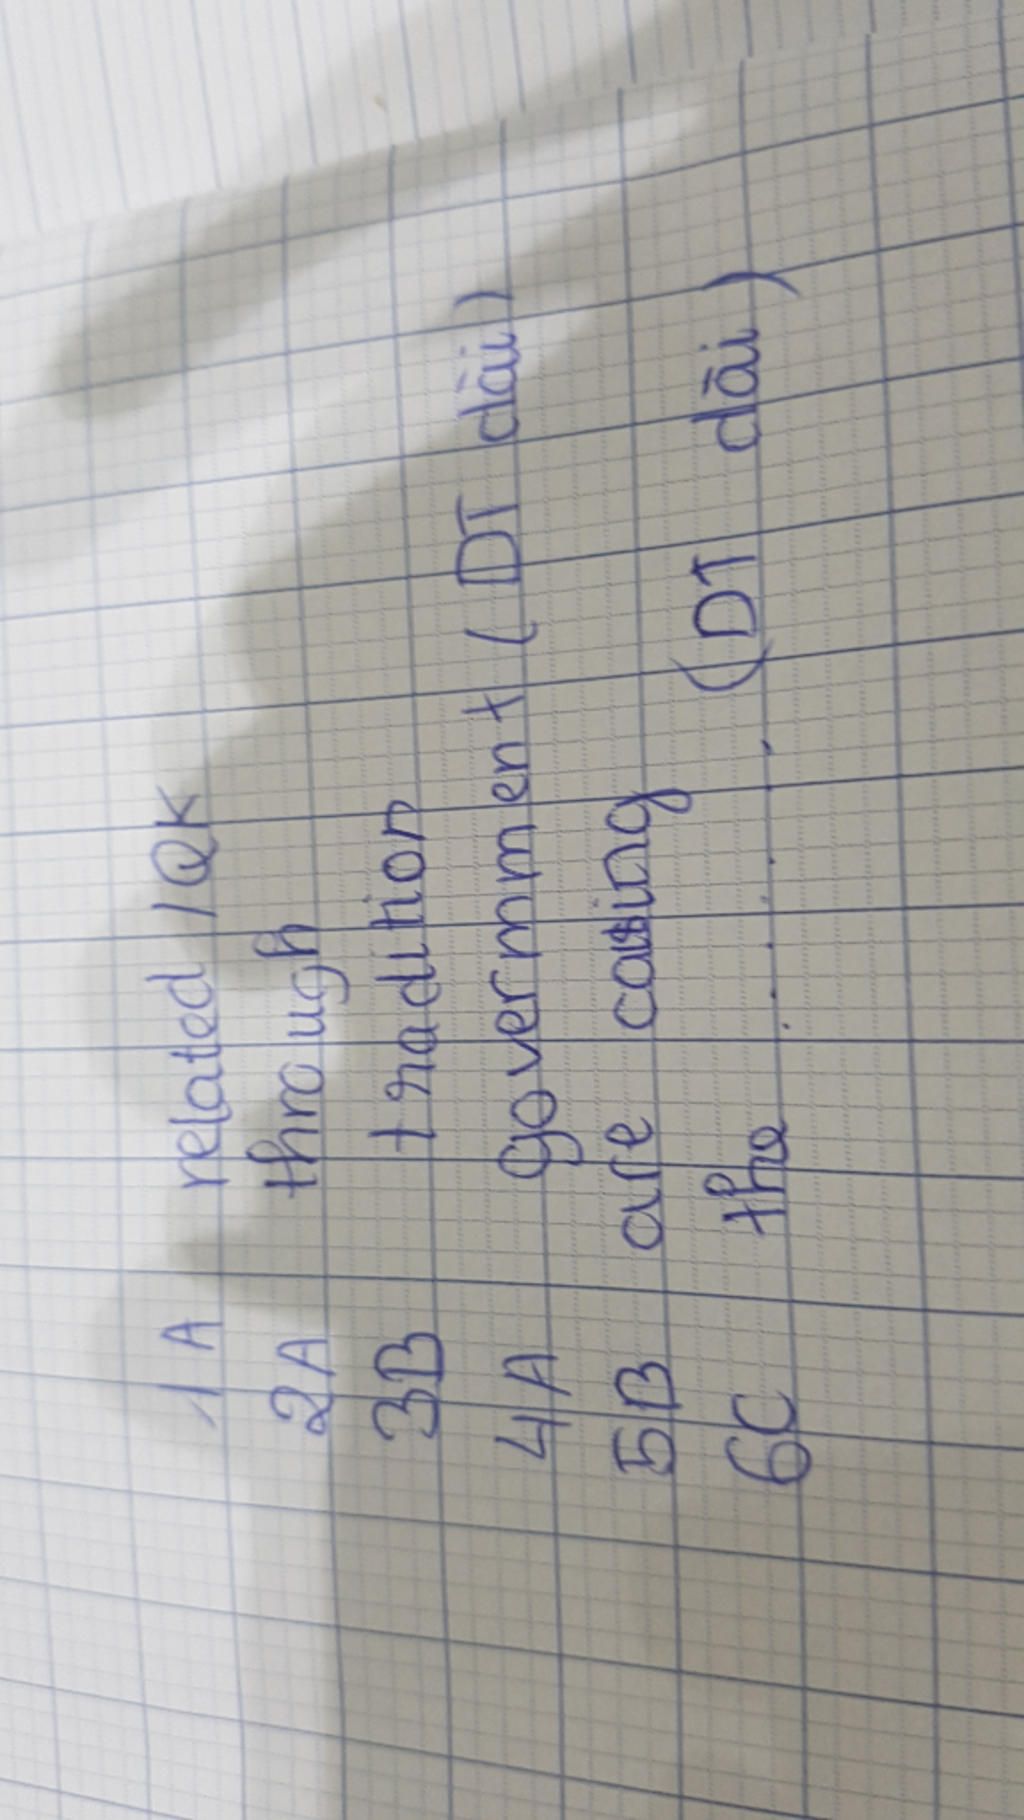 1A related / QK
2A through
3B tradition
4A goverment (DT dài)
5B are causing
6C the ....... (DT dài)